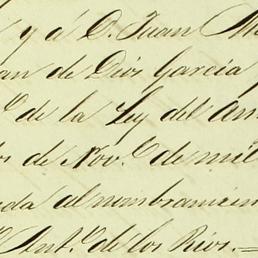 y á D. Juan
de Dios García
de la Ley del
de Nov.e de mil
al nombramien
Ant.o de los Rios.=